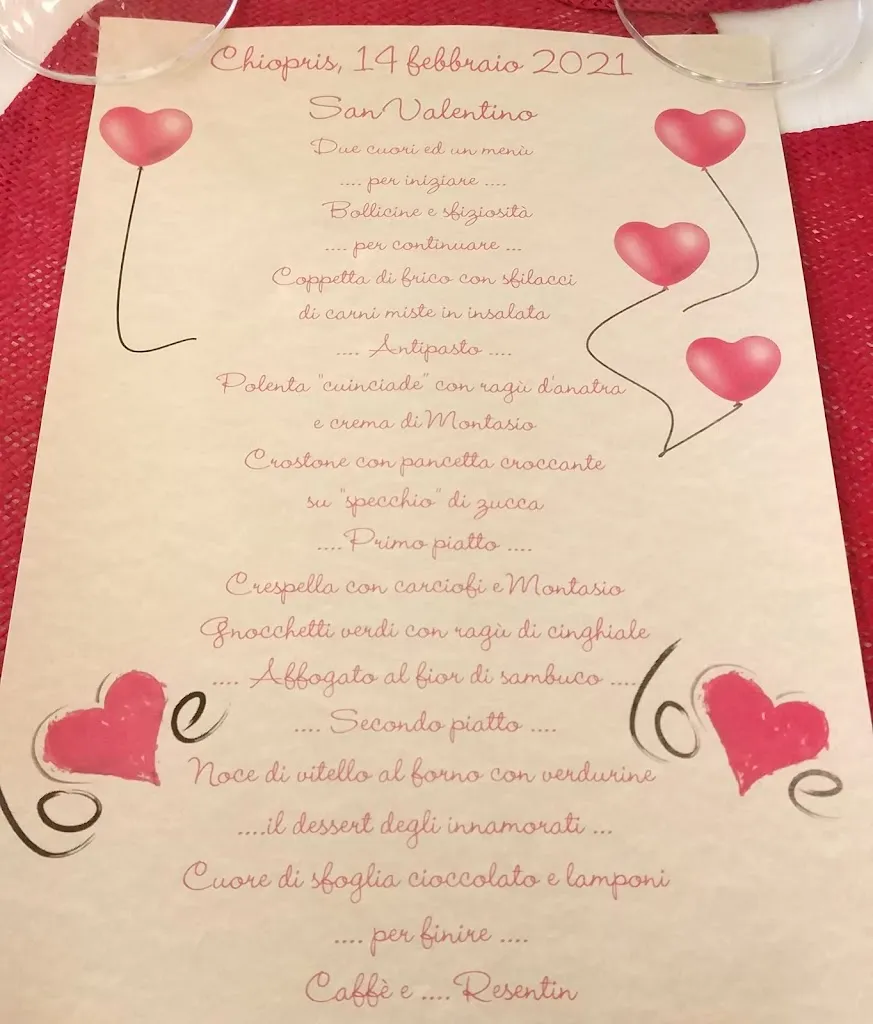 Chiopris, 14 febbraio 2021
San Valentino
Due cuori ed un menù
.... per iniziare ....
Bollicine e sfiziosità
.... per continuare ...
Coppetta di frico con sfilacci
di carni miste in insalata
.... Antipasto ....
Polenta "cuinciade" con ragù d'anatra
e crema di Montasio
Crostone con pancetta croccante
su "specchio" di zucca
.... Primo piatto ....
Crespella con carciofi e Montasio
Gnocchetti verdi con ragù di cinghiale
.... Affogato al fior di sambuco ....
.... Secondo piatto ....
Noce di vitello al forno con verdurine
....il dessert degli innamorati ...
Cuore di sfoglia cioccolato e lamponi
.... per finire ....
Caffè e .... Resentin
lo e
lo e